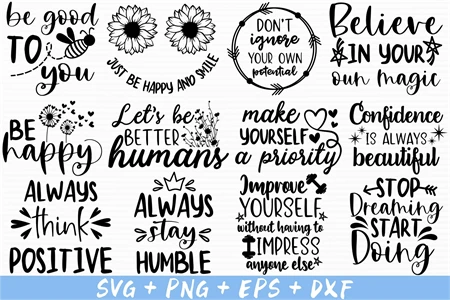 be good
TO
you
JUST BE HAPPY AND SMILE
DON'T
ignore
YOUR OWN
potential
Believe
IN YOUR
own magic
BE
happy
Let's be
BETTER
humans
make
YOURSELF
a priority
Confidence
IS ALWAYS
beautiful
ALWAYS
think
POSITIVE
ALWAYS
stay
HUMBLE
Improve
YOURSELF
without having to
IMPRESS
anyone else
STOP
Dreaming
START
Doing
SVG + PNG + EPS + DXF